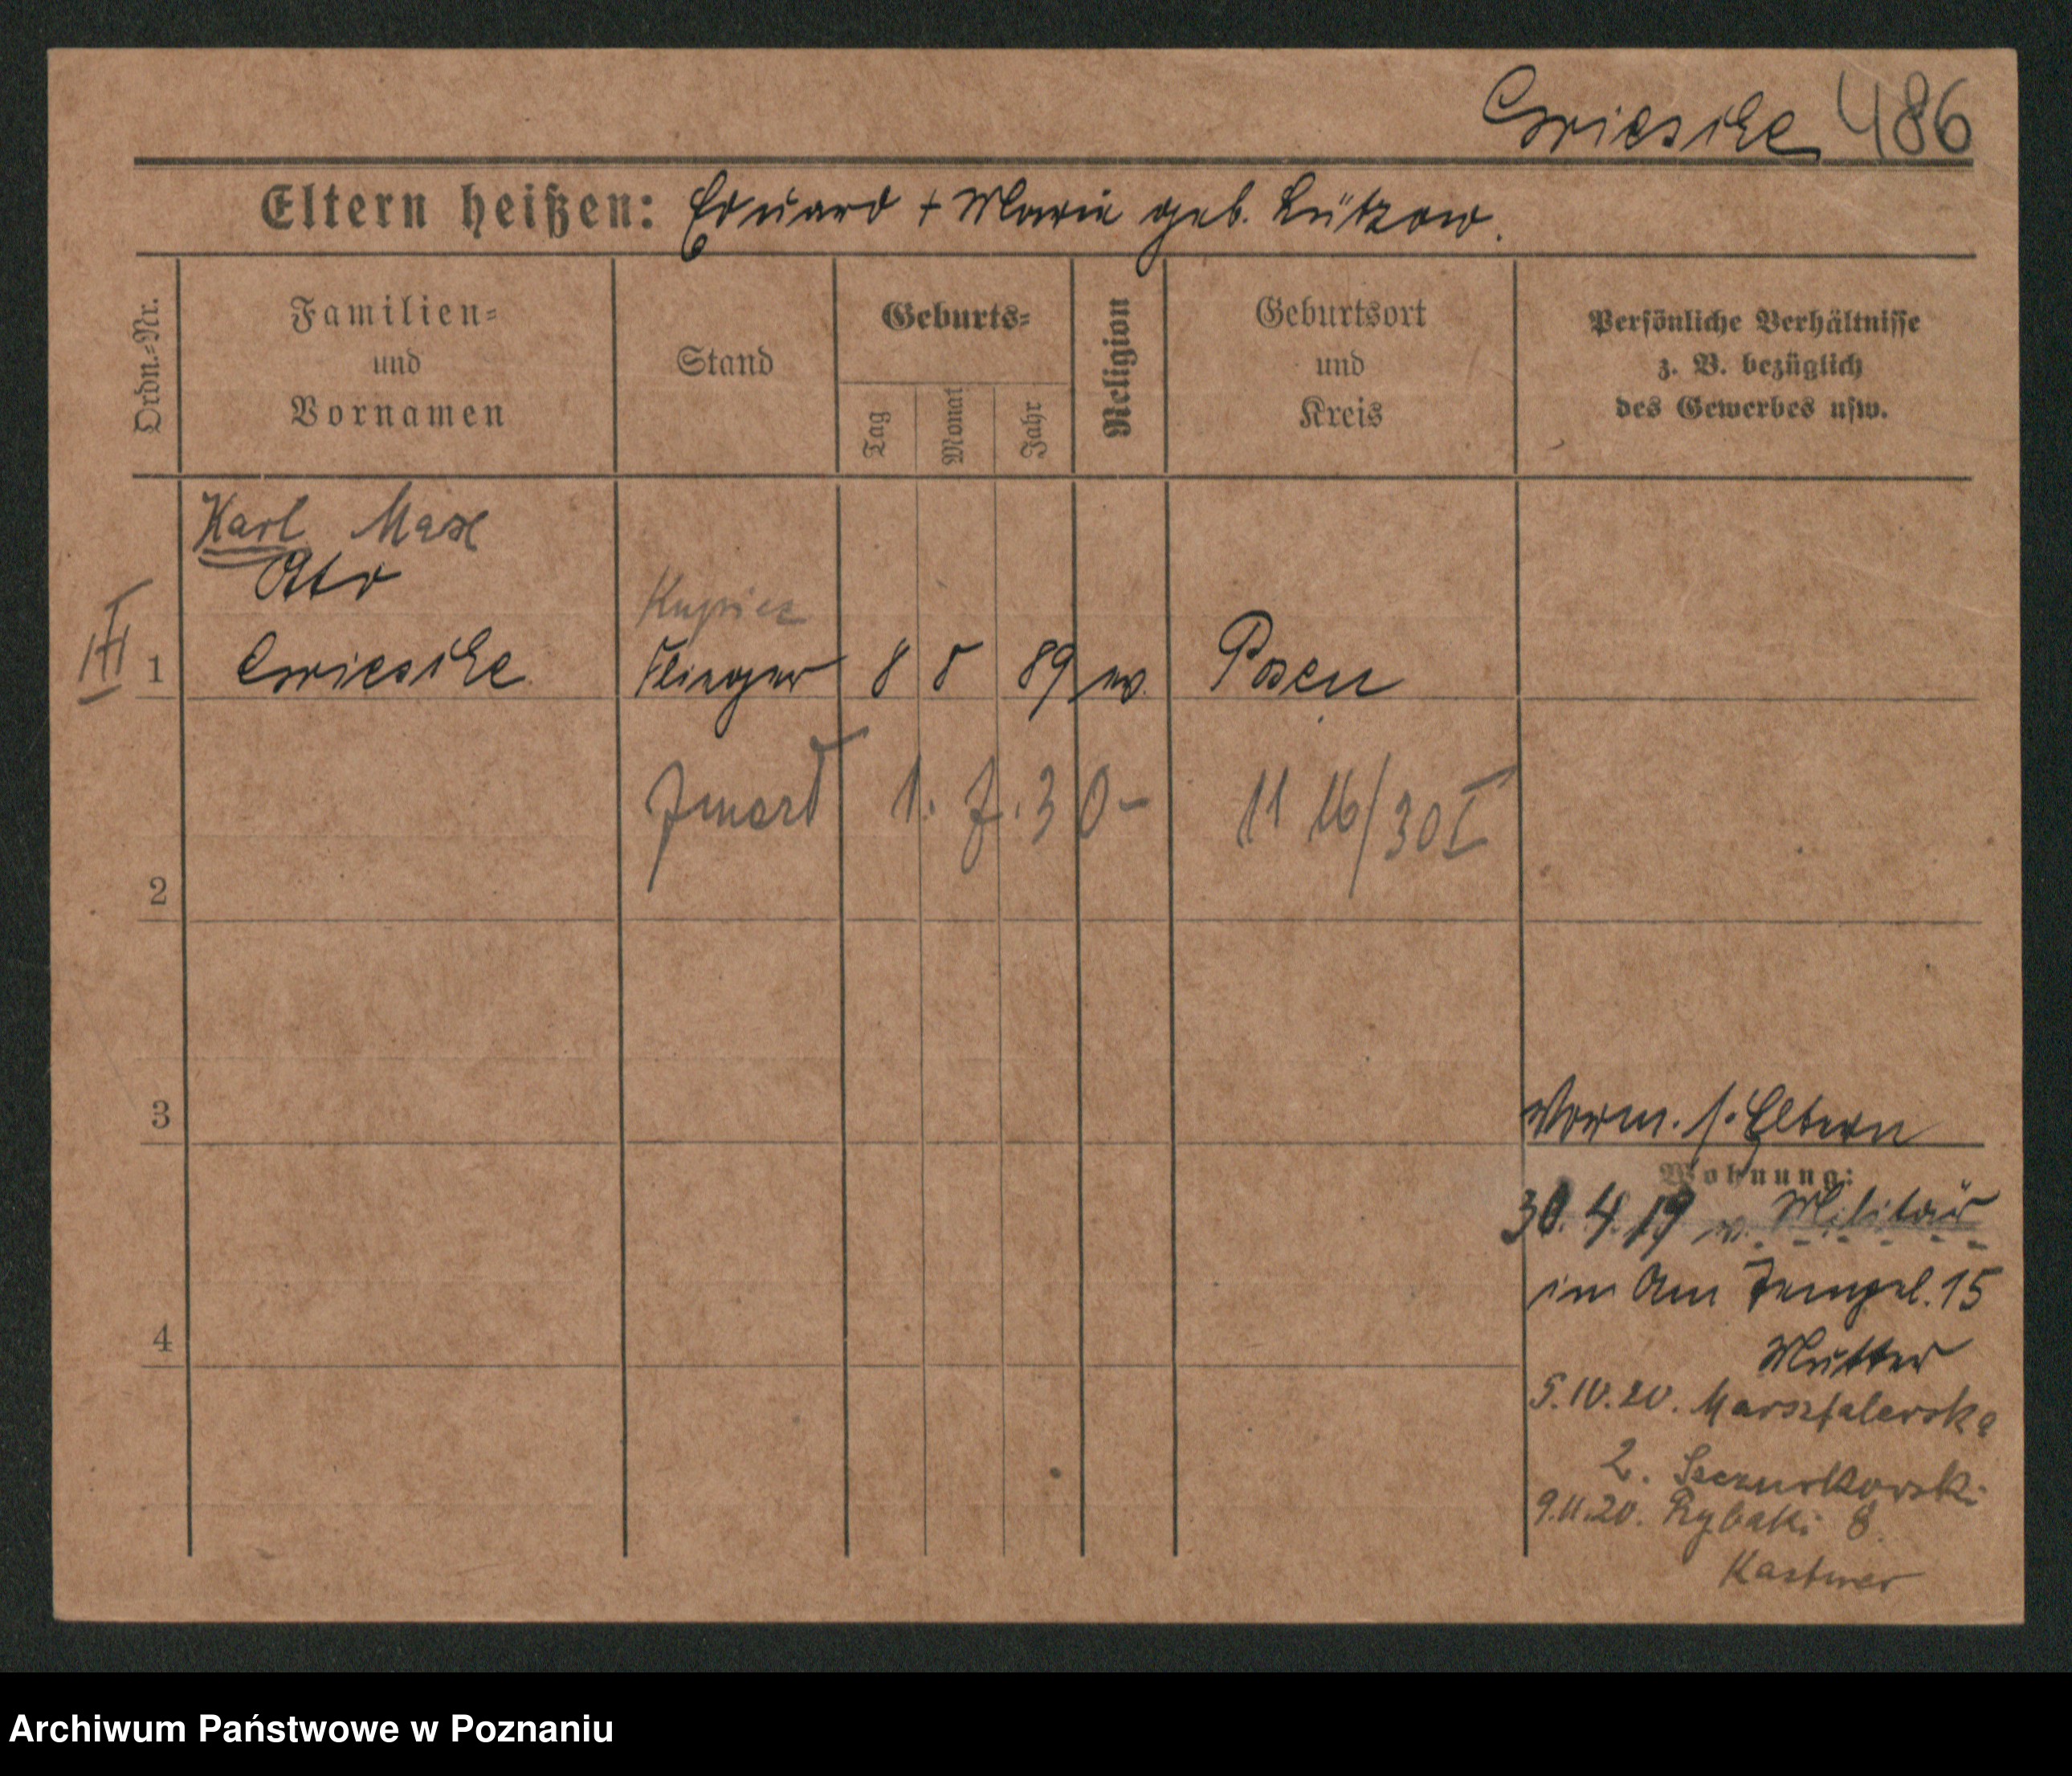 Grieschke 486
Eltern heißen: Eduard + Marie geb. Lützow.
Ordn.-Nr.
Familien-
und
Vornamen
Stand
Geburts-
Tag
Monat
Jahr
Religion
Geburtsort
und
Kreis
Persönliche Verhältnisse
z. B. bezüglich
des Gewerbes usw.
Karl Max
Otto
Kupiec
III 1 Flieger 8 8 89 ev. Posen
Zmarł 1. 7. 30 - 11 16/30 I
2
3
Vorm. s. Eltern
Wohnung:
30. 4. 19 v. Militär
in Am Tempel. 15
4
Mutter
5.IV.20. Marsztalerska
2. Szczurkowski
9.11.20. Rybaki 8.
Kastner
Archiwum Państwowe w Poznaniu